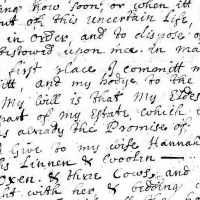 ing how soon, or when itt
out of this uncertain Life,
in order, and to dispose of
bestowed upon mee in ma
first place I comẽmitt m
itt and my bodye to the
My Will is that My Eldes
part of my Estate, which
is already the Promise of
I Give to my wife Hannah
is Linnen & Woolin
Oxen & three Cows, and
with her, & bedding